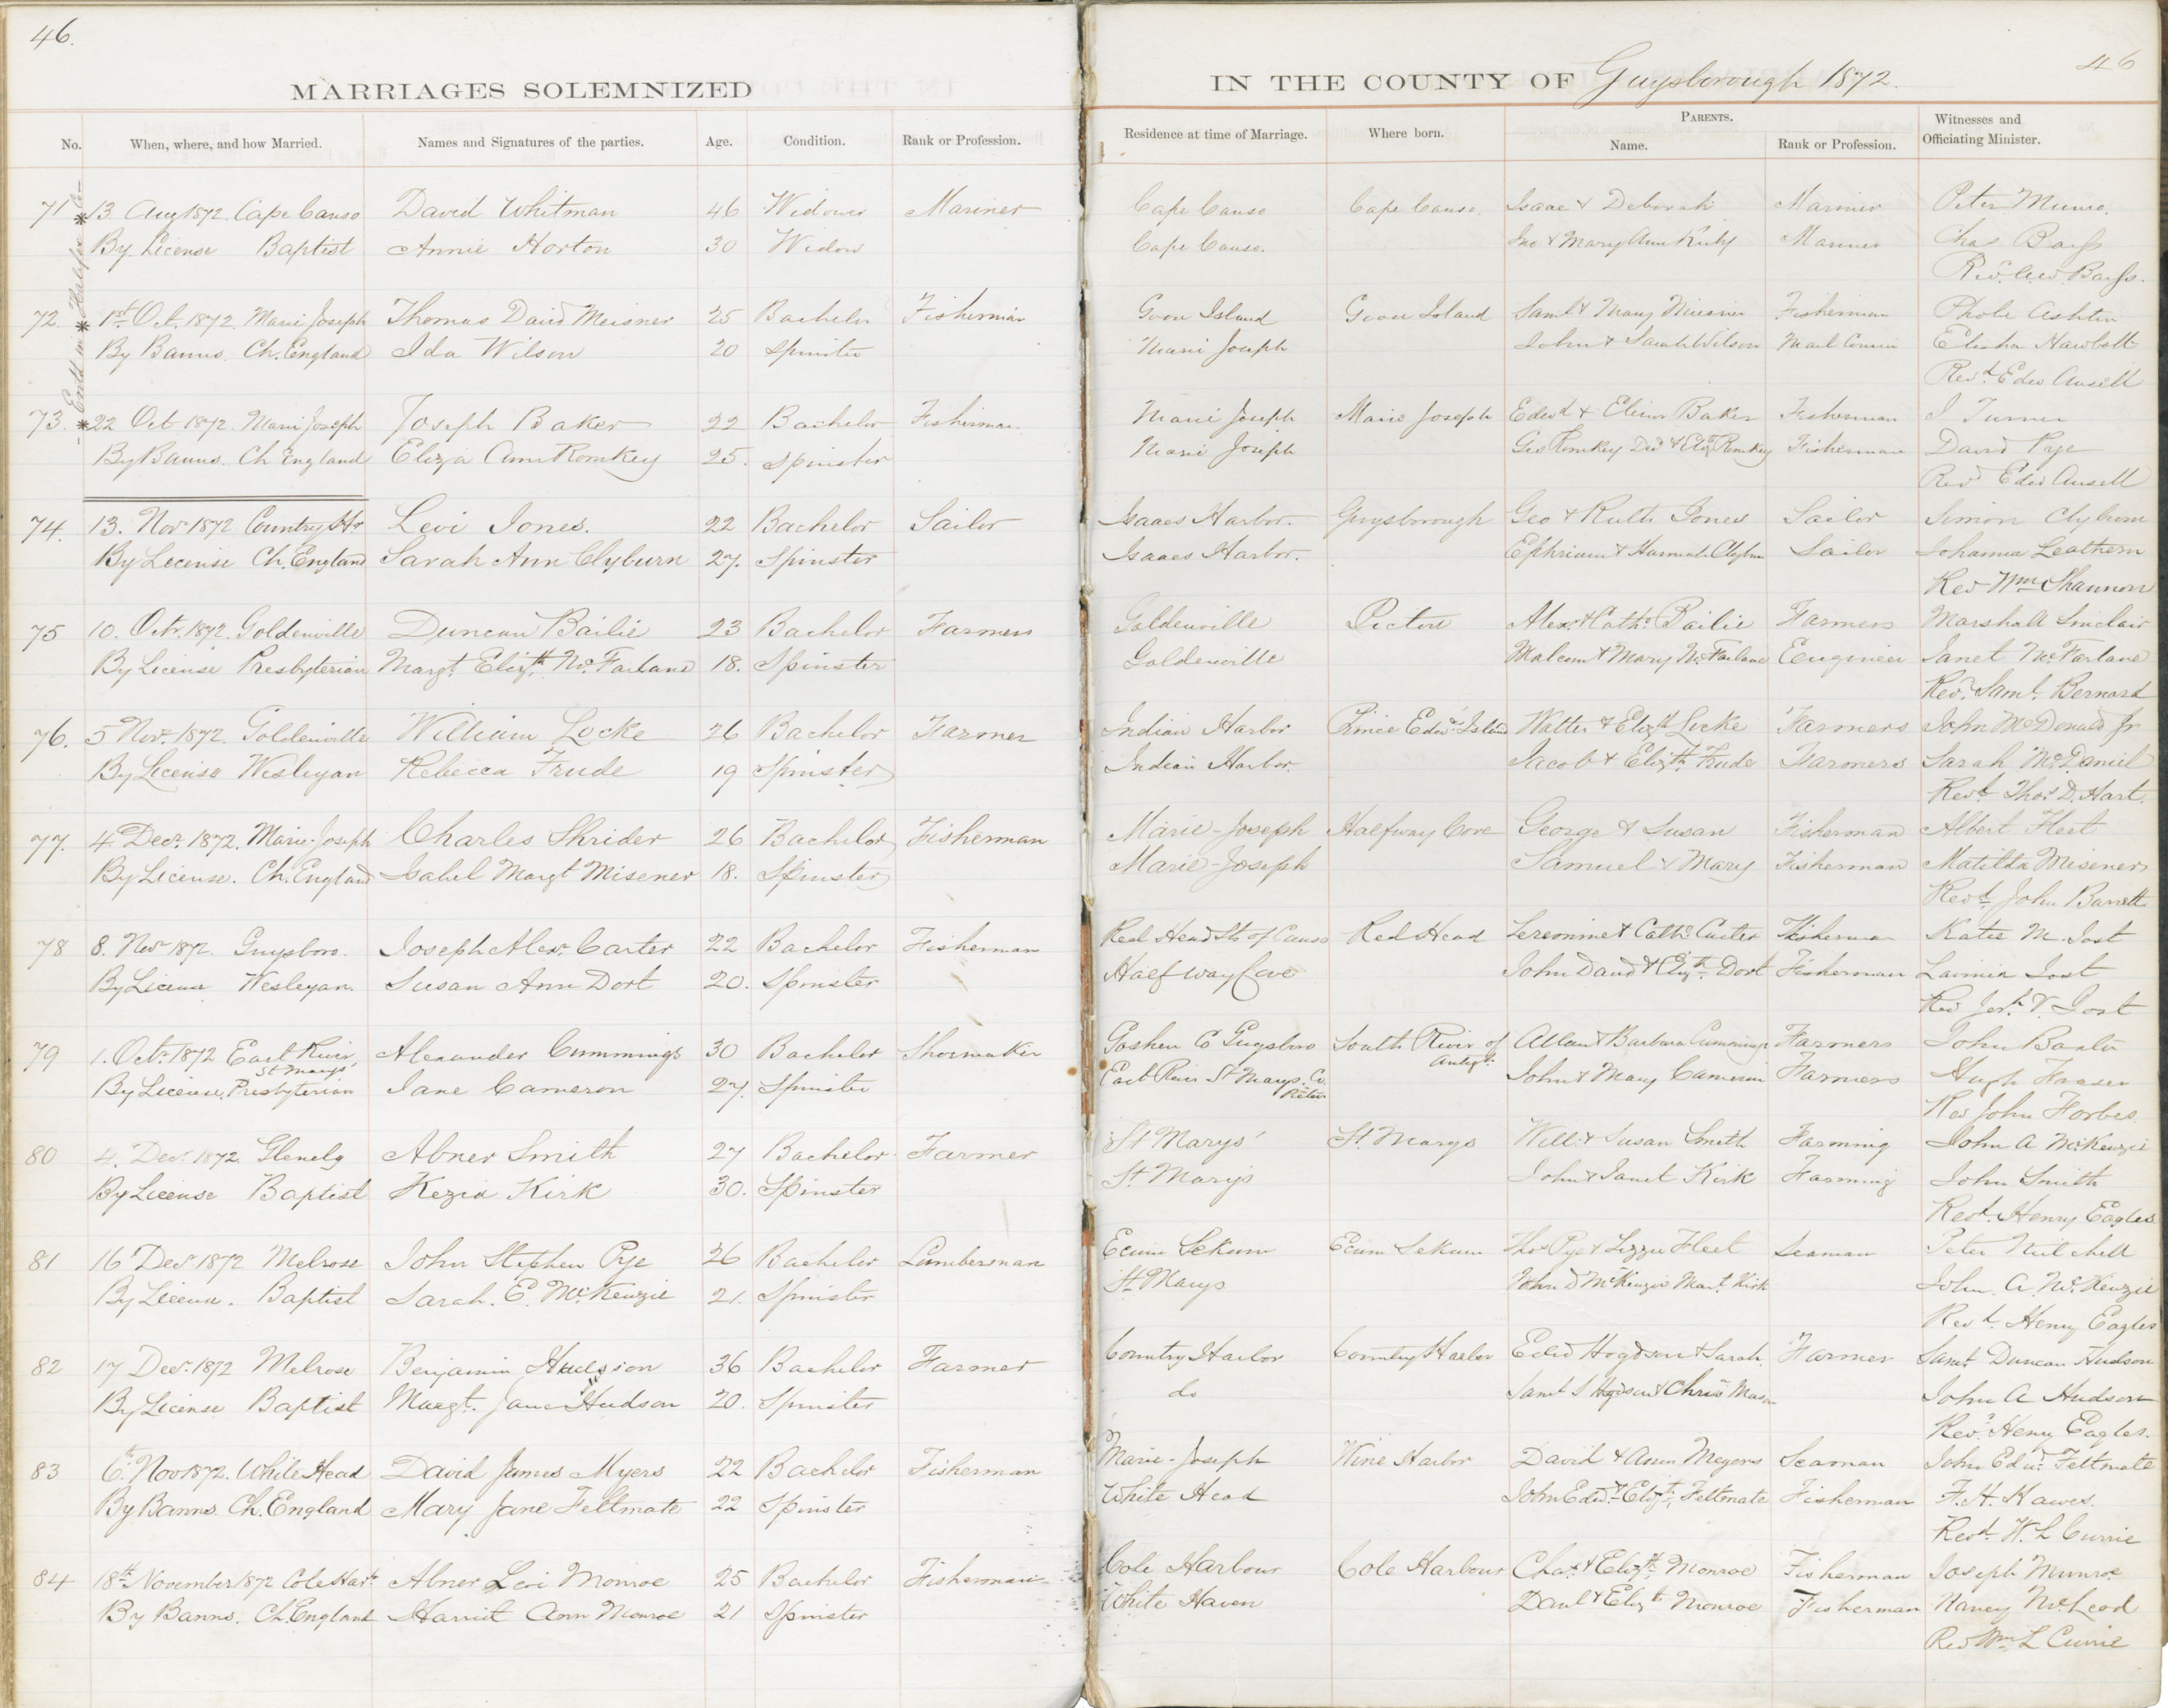 46.
46
MARRIAGES SOLEMNIZED IN THE COUNTY OF Guysborough 1872.
No. When, where, and how Married. Names and Signatures of the parties. Age. Condition. Rank or Profession. Residence at time of Marriage. Where born. PARENTS. Name. Rank or Profession. Witnesses and Officiating Minister.
71 * 13 Aug 1872. Cape Canso David Whitman 46 Widower Mariner Cape Canso Cape Canso. Isaac & Deborah Mariner Peter Munro.
By License Baptist Annie Horton 30 Widow Cape Canso. Jno & Mary Ann Mariner Chas Barss
Rev. Barss.
72. * 1st Oct. 1872. Marie Joseph Thomas David Meisner 25 Bachelor Fisherman Goose Island Goose Island Saml & Mary Fisherman Phobe Ashton
By Banns. Ch. England Ida Wilson 20 Spinster Marie Joseph John & Sarah Wilson Mail Elisha Hawbolt
Revd. Edw Ansell
73. * 22 Oct 1872. Marie Joseph Joseph Baker 22 Bachelor Fisherman Marie Joseph Marie Joseph Edwd & Baker Fisherman J Turner
By Banns. Ch England Eliza Ann Romkey 25. Spinster Marie Joseph Geo Romkey Romkey Fisherman David Pye
Revd Edw Ansell
74. 13. Novr 1872 Country Hr. Levi Jones. 22 Bachelor Sailor Isaacs Harbor. Guysborough Geo & Ruth Jones Sailor Simon Clyburn
By Lecense Ch. England Sarah Ann Clyburn 27. Spinster Isaacs Harbor. Ephriam & Hannah Clyburn Sailor Johanna Leathern
Rev Wm Shannon
75 10. Octr. 1872. Goldenville Duncan Bailie 23 Bachelor Farmer Goldenville Pictou Alexr & Cath. Bailie Farmers Marshall Sinclair
By License Presbyterian Margt. Elizth. McFarlane 18. Spinster Goldenville Malcom & Mary McFarlane Eengineer Janet McFarlane
Revd. Saml. Bernard
76. 5 Novr. 1872. Goldenville William Locke 26 Bachelor Farmer Indian Harbor Prince Edwds Island Walter & Elizth Locke Farmers John McDonald Jr
By License Wesleyan Rebecca Frude 19 Spinster Indian Harbor. Jacob & Elizth. Frude Farmers Sarah McDaniel
Revd. Thos D. Hart.
77. 4 Decr. 1872. Marie-Joseph Charles Shrider 26 Bachelor Fisherman Marie-Joseph Halfway Cove George & Susan Fisherman Albert Fleet
By License. Ch. England Isabel Margt Misener 18. Spinster Marie-Joseph Samuel & Mary Fisherman Matilda Misener
Revd. John Barrett
78 8. Novr 1872. Guysboro. Joseph Alexr. Carter 22 Bachelor Fisherman Red Head Sts of Canso Red Head & Cathe Carter Fisherman Katie M. Jost
By License Wesleyan. Susan Ann Dort 20. Spinster Half way Cove John David & Elizth. Dort Fisherman Lavinia Jost
Rev V. Jost
79 1. Octr. 1872 East River St Marys' Alexander Cummings 30 Bachelor Shoemaker Goshen C Guysboro South River of Antigt. Allan & Barbara Cummings Farmers John
By License, Presbyterian Jane Cameron 27. Spinster East River St Marys. Co. Pictou John & Mary Cameron Farmers Hugh Fraser
Rev John Forbes
80 4. Decr. 1872. Glenelg Abner Smith 27 Bachelor Farmer St Marys' St Marys Will. & Susan Smith Farming John A McKenzie
By License Baptist Kezia Kirk 30. Spinster St. Marys John & Janet Kirk Farming John Smith
Revd. Henry Eagles
81 16 Decr 1872 Melrose John Stephen Pye 26 Bachelor Lumberman Ecum Sekum Ecum Sekum Thos Pye & Lizzie Fleet Seaman Peter Mitchell
By License. Baptist Sarah. E. McKenzie 21. Spinster St Marys John D McKenzie Mart. Kirk John. A. McKenzie
Revd. Henry Eagles
82 17 Decr. 1872 Melrose Benjamin Hudson 36 Bachelor Farmer Country Harbor Country Harbor Edwd Hogdson & Sarah Farmer Saml Duncan Hudson
By License Baptist Margt. Jane Hudson 20. Spinster do Saml S Hogdson & Chris Mason John A Hudson
Revd. Henry Eagles.
83 6th. Nov 1872. White Head David James Myers 22 Bachelor Fisherman Marie-Joseph Wine Harbor David & Ann Meyers Seaman John Edwd. Feltmate
By Banns. Ch. England Mary Jane Feltmate 22 Spinster White Head John Edwd. & Elizth. Feltmate Fisherman F. H. Hawes.
Revd. W. L Currie
84 18th. November 1872 Cole Harr. Abner Levi Monroe 25 Bachelor Fisherman Cole Harbour Cole Harbour Chas. & Elizth. Monroe Fisherman Joseph Munroe
By Banns. Ch. England Harriet Ann Monroe 21 Spinster White Haven Danl & Elizth Monroe Fisherman Nancy McLeod
Rev Wm L Currie